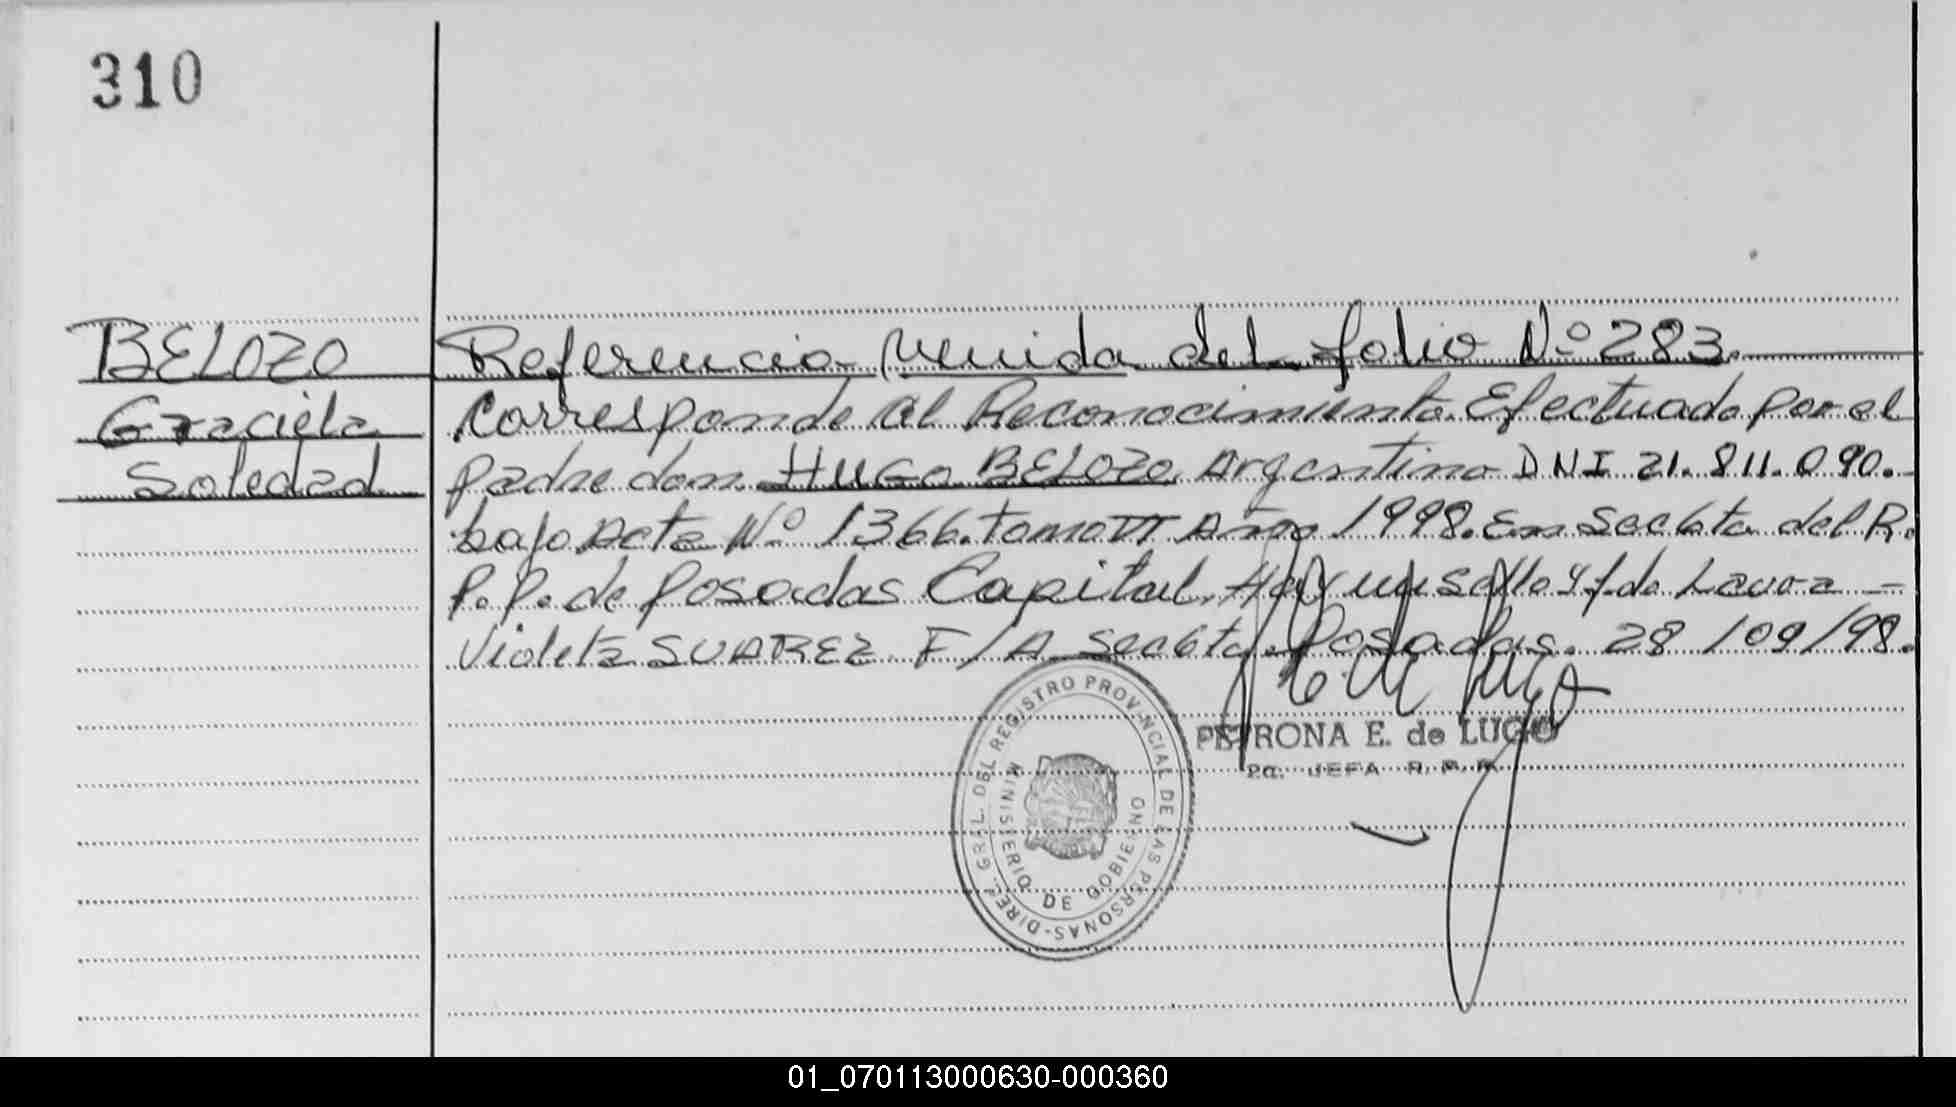 310
BELOZO
Graciela
Soledad
Referencia venida del folio Nº 283.
Corresponde al Reconocimiento Efectuado por el
padre don HUGO BELOZO, Argentino DNI 21.811.090.
bajo Acta Nº 1366. tomo VI Año 1998. En Secc 6ta del R.
P.P. de Posadas Capital. Hay un sello y f. do Laura
Violeta SUAREZ F/A Secc 6ta. Posadas. 28/09/98.
PETRONA E. de LUGO
2a. JEFA R. P. P.
DIREC. GRAL. DEL REGISTRO PROVINCIAL DE LAS PERSONAS-
MINISTERIO DE GOBIERNO
01_070113000630-000360